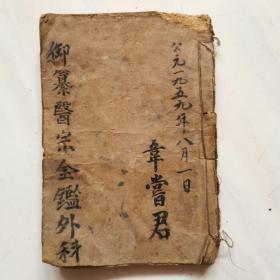 公元一九五九年八月一日
韋嘗君
御纂醫宗金鑑外科